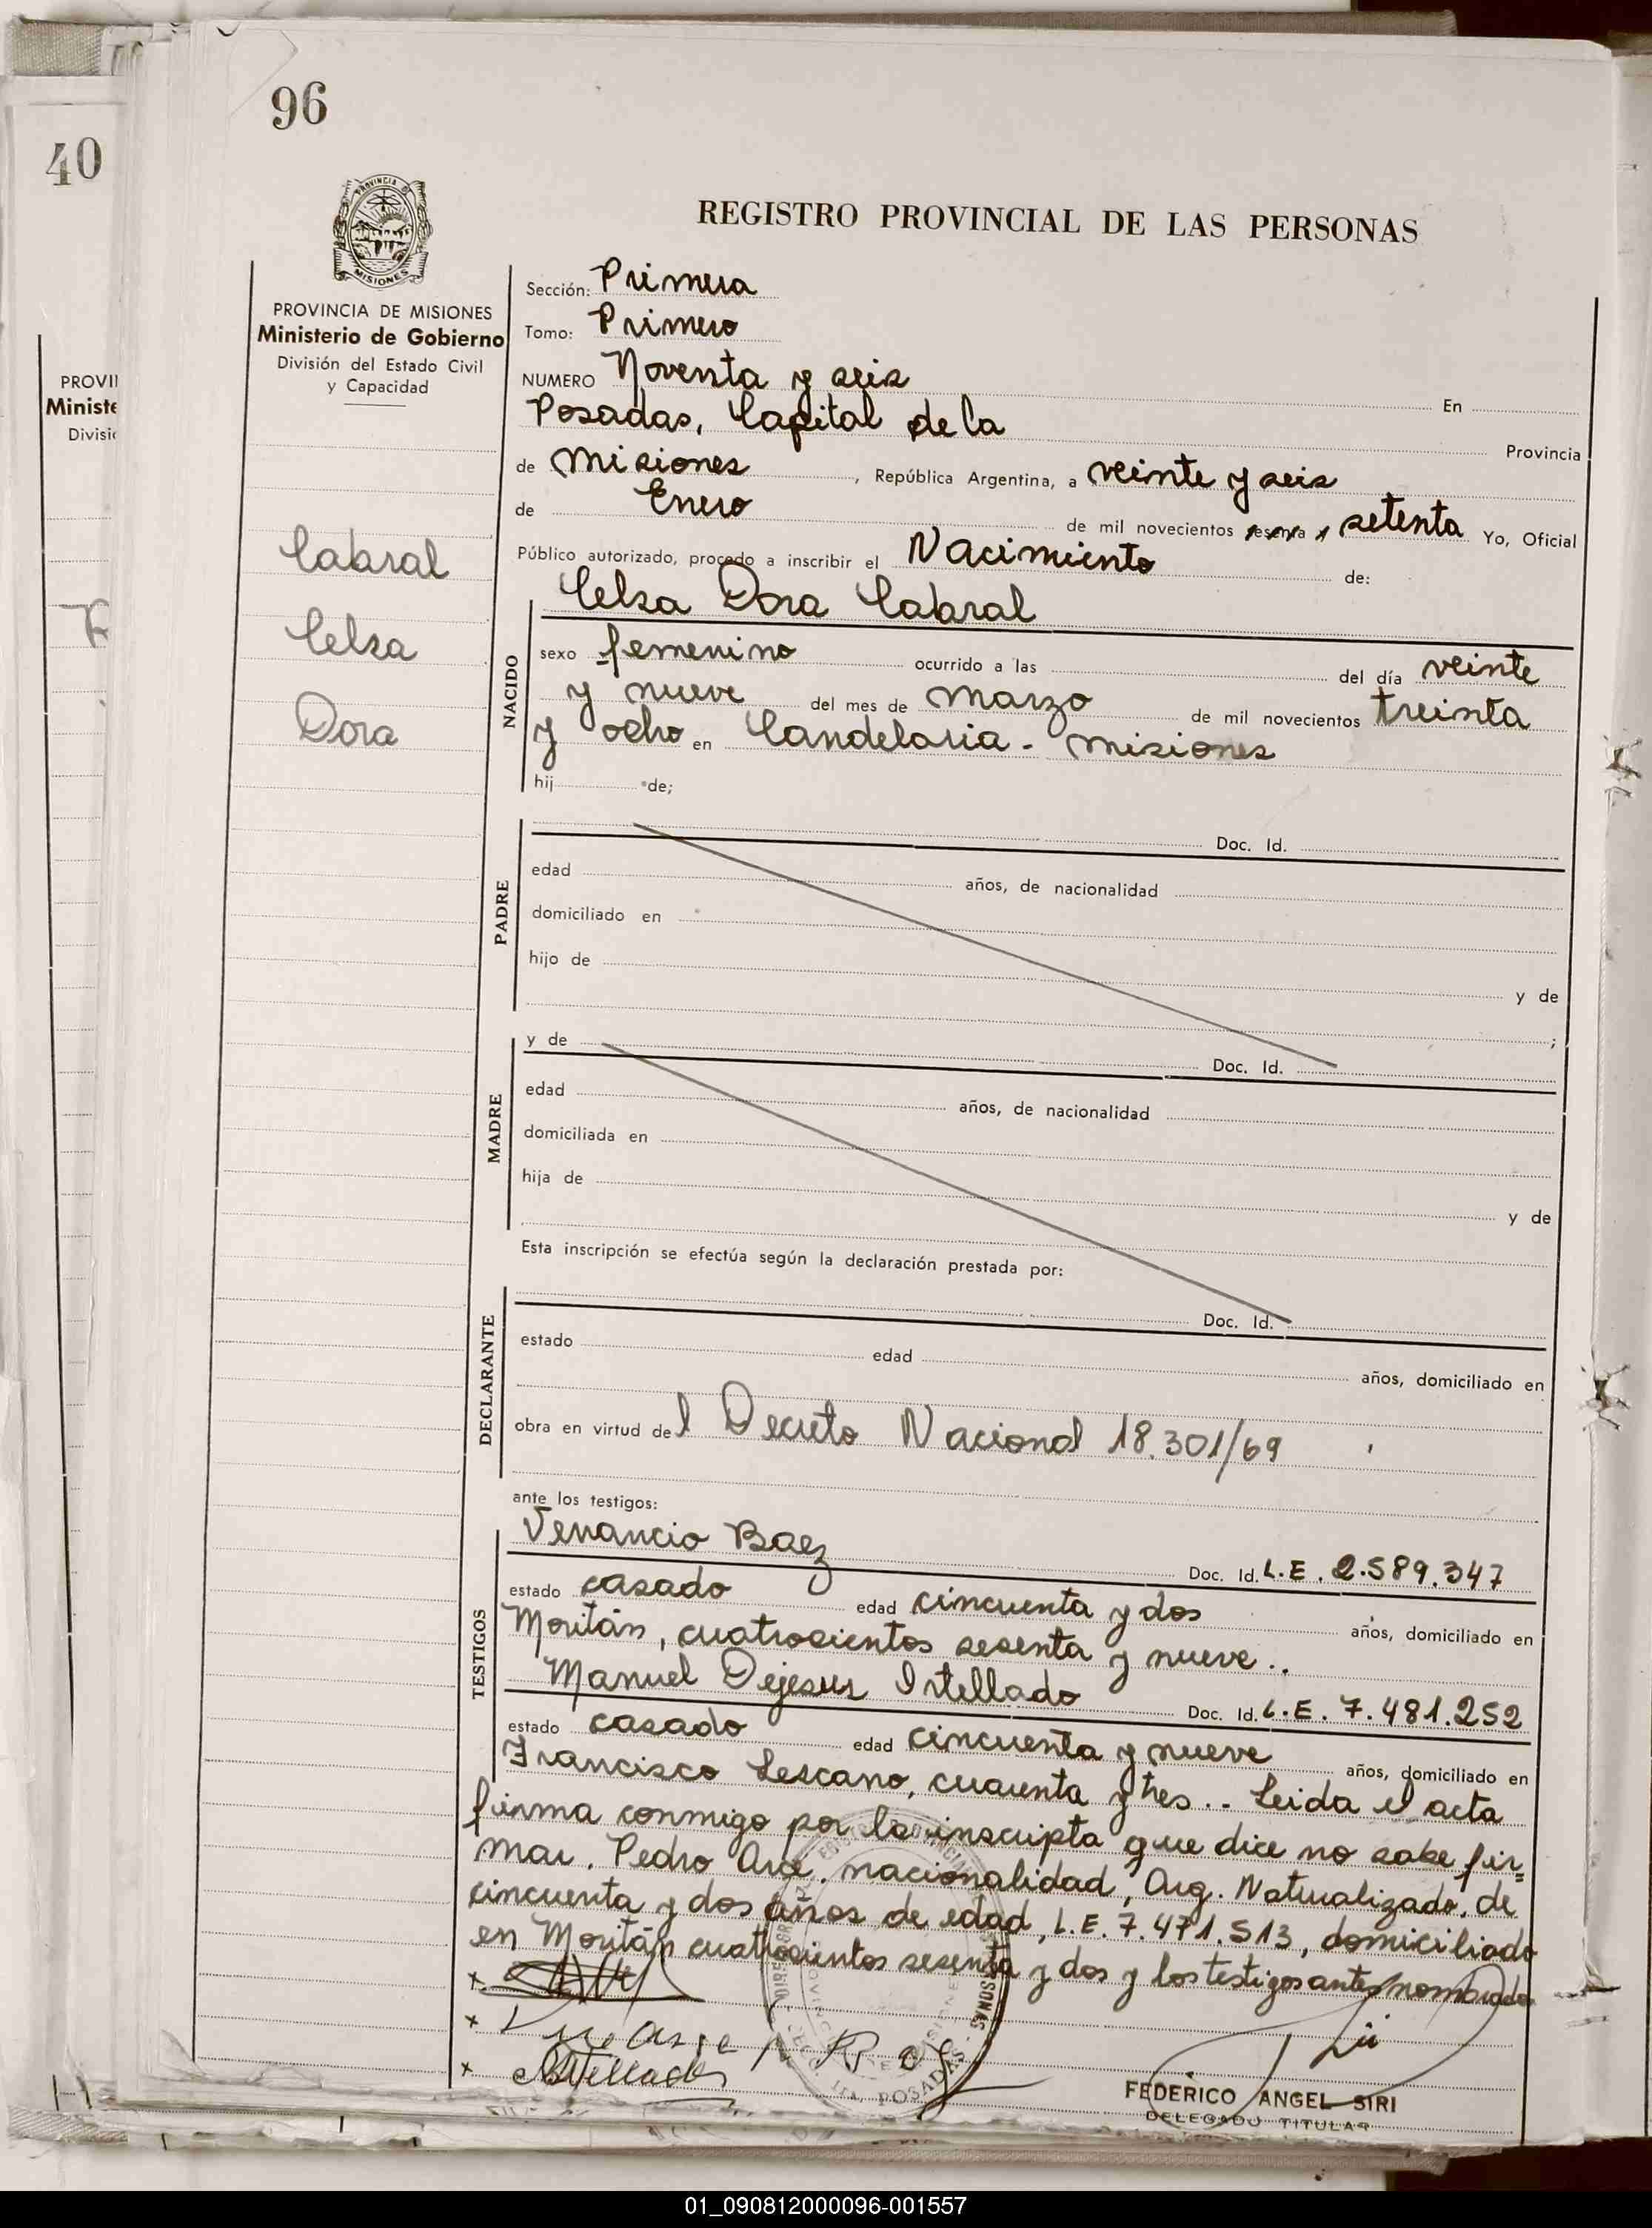 96
40
PROVINCIA DE MISIONES
REGISTRO PROVINCIAL DE LAS PERSONAS
PROVINCIA DE MISIONES
Ministerio de Gobierno
División del Estado Civil
y Capacidad
PROVI
Ministe
Divisió
Cabral
Celsa
Dora
Sección: Primera
Tomo: Primero
NUMERO Noventa y seis En
Posadas, Capital de la Provincia
de Misiones, República Argentina, a veinte y seis
de Enero de mil novecientos sesenta y setenta Yo, Oficial
Público autorizado, procedo a inscribir el Nacimiento de:
Celsa Dora Cabral
NACIDO
sexo femenino ocurrido a las del día veinte
y nueve del mes de Marzo de mil novecientos treinta
y ocho en Candelaria - Misiones
hij de;
PADRE
Doc. Id.
edad años, de nacionalidad
domiciliado en
hijo de
y de
;
MADRE
y de Doc. Id.
edad años, de nacionalidad
domiciliada en
hija de
y de
Esta inscripción se efectúa según la declaración prestada por:
DECLARANTE
Doc. Id.
estado edad años, domiciliado en
obra en virtud del Decreto Nacional 18.301/69
ante los testigos:
TESTIGOS
Venancio Baez Doc. Id. L.E. 2.589.347
estado casado edad cincuenta y dos años, domiciliado en
Moritán, cuatrocientos sesenta y nueve..
Manuel Dejesus Intellado Doc. Id. L.E. 7.481.252
estado casado edad cincuenta y nueve años, domiciliado en
Francisco Lescano, cuarenta y tres.. Leida el acta
firma conmigo por la inscripta que dice no sabe fir=
mar. Pedro Arce, nacionalidad, Arg. Naturalizado, de
cincuenta y dos años de edad, L.E. 7.471.513, domiciliado
en Moritán cuatrocientos sesenta y dos y los testigos antes nombrados
POSADAS
FEDERICO ANGEL SIRI
DELEGADO TITULAR
01_090812000096-001557